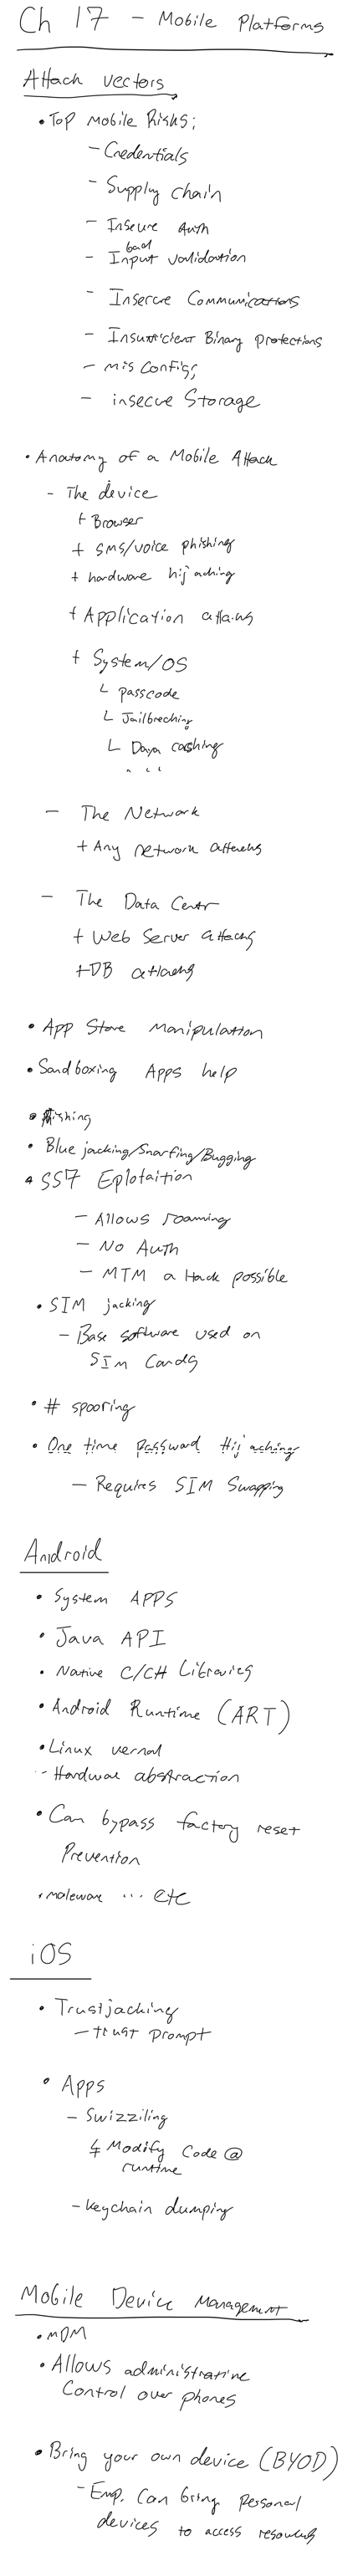 Ch 17 - Mobile Platforms
Attack vectors
• Top Mobile Risks;
- Credentials
- Supply chain
- Insecure Auth
bad
- Input validation
- Insercure Communications
- Insufficient Binary protections
- mis configs
- insecue Storage
• Anatomy of a Mobile Attack
- The device
+ Browser
+ SMS/voice phishing
+ hardware hijaching
+ Application attacks
+ System/OS
└ passcode
└ Jailbreching
└ Daya cashing
- The Network
+ Any network attachs
- The Data Centr
+ Web Server attacks
+ DB attachs
• App Store manipulation
• Sandboxing Apps help
• Phishing
• Blue jacking/Snarfing/Bugging
• SS7 Eplotaition
- Allows roaming
- No Auth
- MTM attack possible
• SIM jacking
- Base software used on
SIM Cards
• # spooring
• One time password Hijaching
- Requires SIM Swapping
Android
• System APPS
• Java API
• Native C/C++ Libraries
• Android Runtime (ART)
• Linux vernal
- Hardware abstraction
• Can bypass factory reset
Prevention
• maleware ... etc
iOS
• Trustjacking
- trust prompt
• Apps
- Swizziling
↳ Modify Code @
runtime
- keychain dumping
Mobile Device Management
• MDM
• Allows administrative
Control over phones
• Bring your own device (BYOD)
- Emp. Can bring personal
devices to access resources